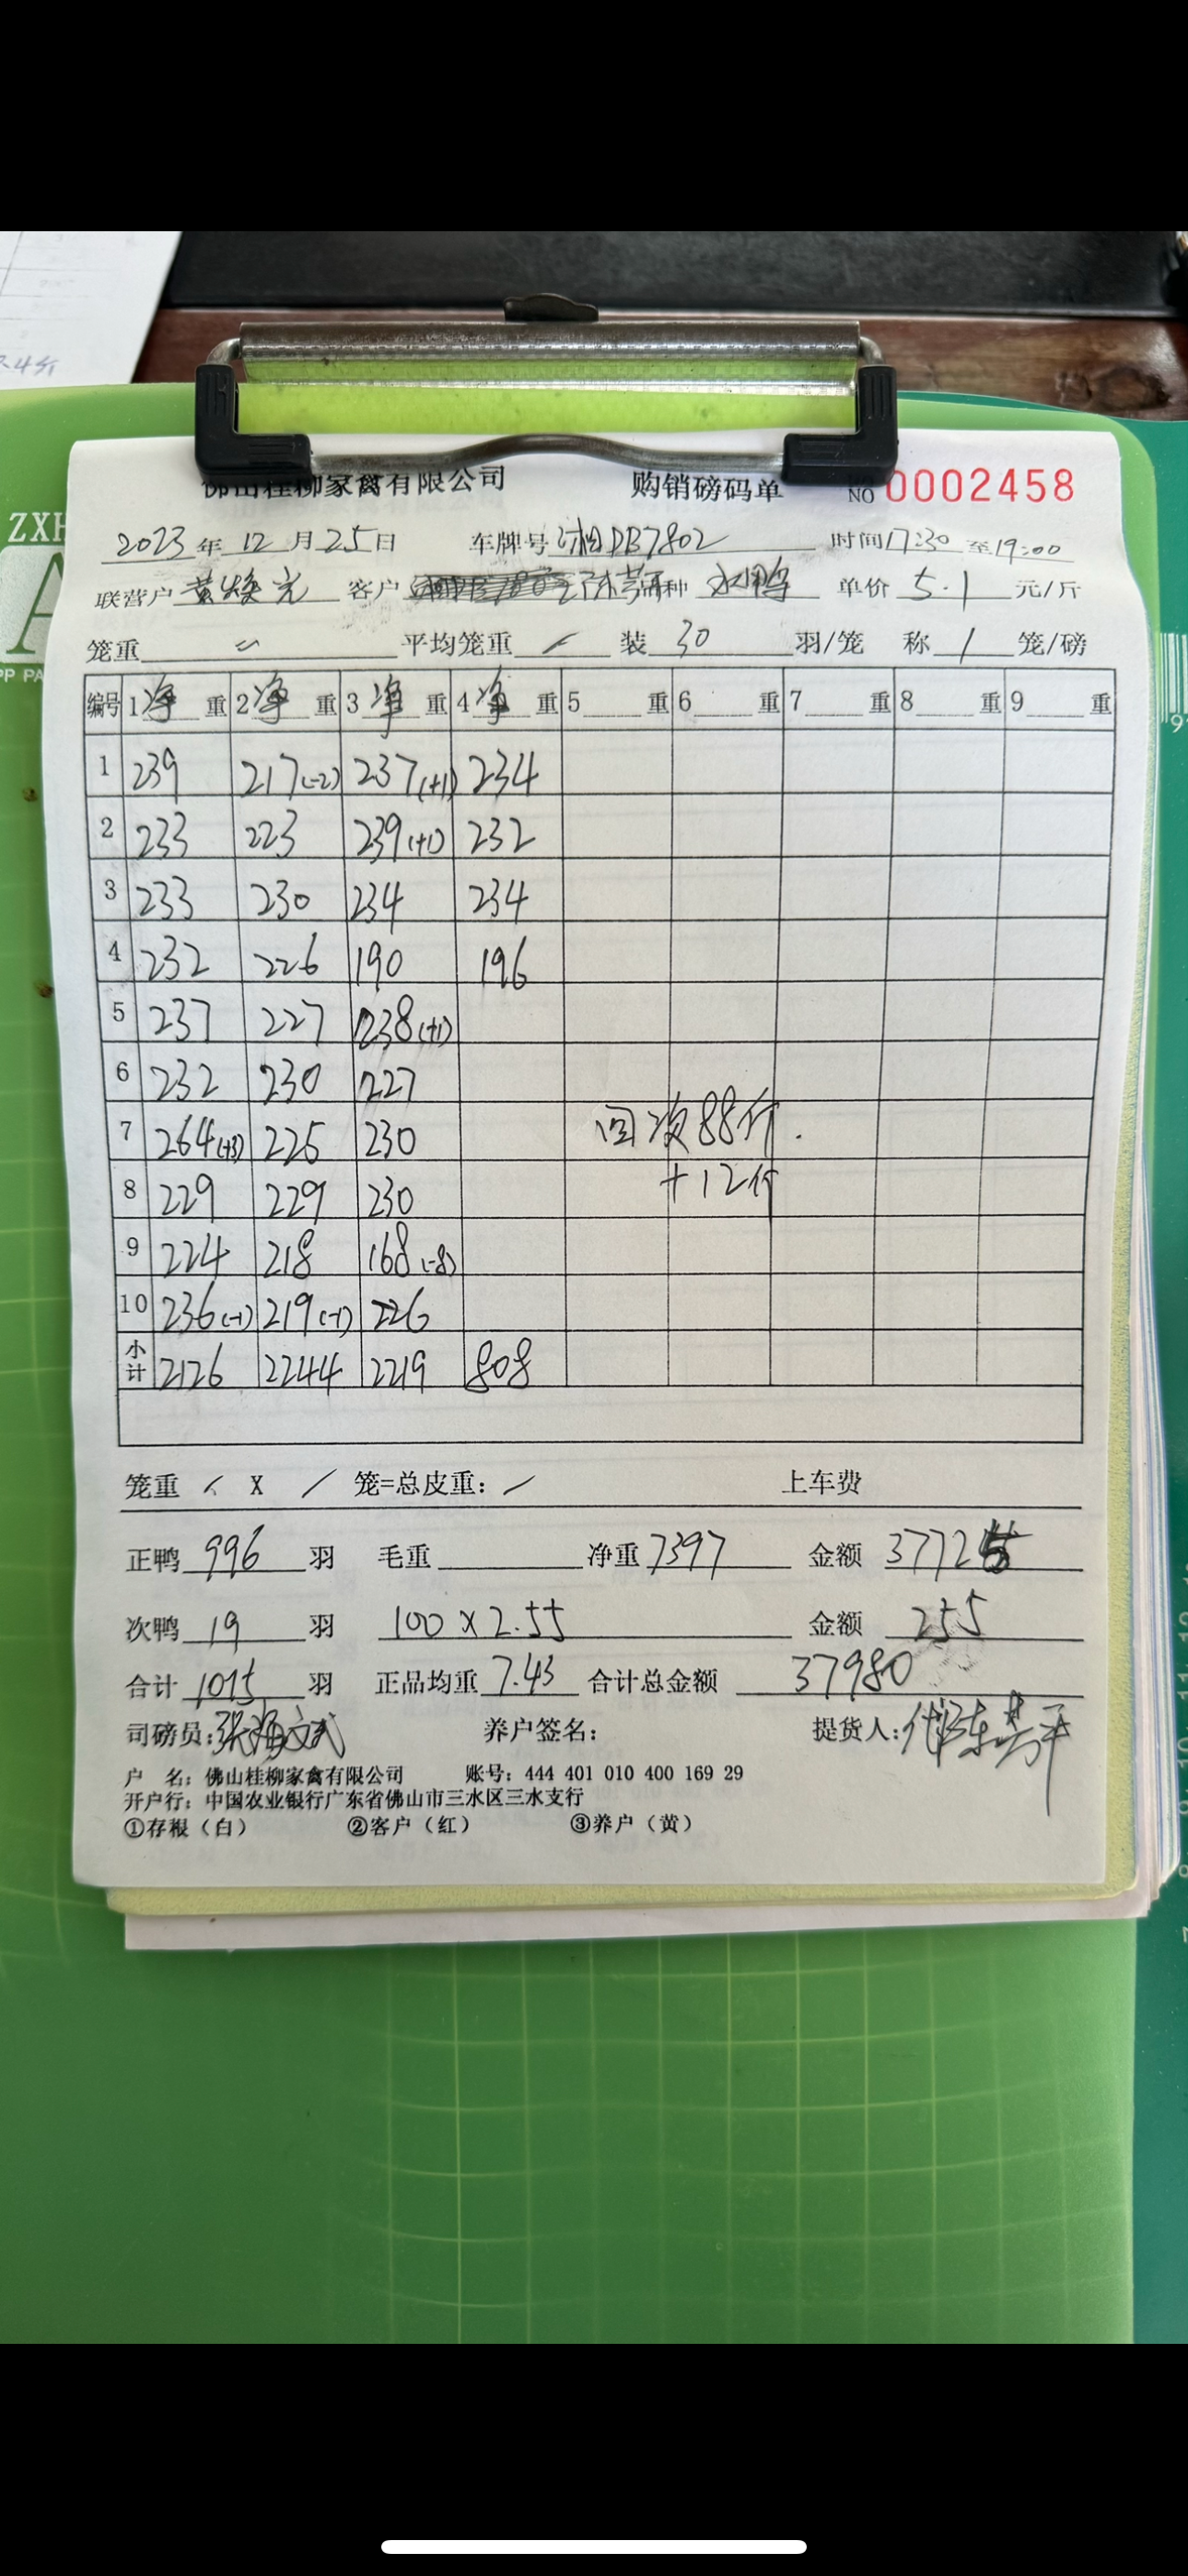 ZXH
佛山桂柳家禽有限公司 购销磅码单 NO 0002458
2023年12月25日 车牌号 DB7802 时间17:30至19:00
联营户 黄焕光 客户 品种 水鸭 单价 5.1 元/斤
笼重 平均笼重 装 30 羽/笼 称 1 笼/磅
PP PA
编号 1净重 2净重 3净重 4净重 5 重 6 重 7 重 8 重 9 重
1 239 217(-2) 237(+1) 234
2 233 223 239(+1) 232
3 233 230 234 234
4 232 226 190 196
5 237 227 238(+1)
6 232 230 227
7 264(+3) 225 230
回次88斤.
8 229 229 230
+12斤
9 224 218 168(-8)
10 236(-1) 219(-1) 226
小计 2126 2244 2219 808
笼重 X 笼=总皮重: 上车费
正鸭 996 羽 毛重 净重 7397 金额 37725
次鸭 19 羽 100×2.55 金额 255
合计 1015 羽 正品均重 7.43 合计总金额 37980
司磅员: 养户签名: 提货人:
户 名: 佛山桂柳家禽有限公司 账号: 444 401 010 400 169 29
开户行: 中国农业银行广东省佛山市三水区三水支行
①存根（白） ②客户（红） ③养户（黄）